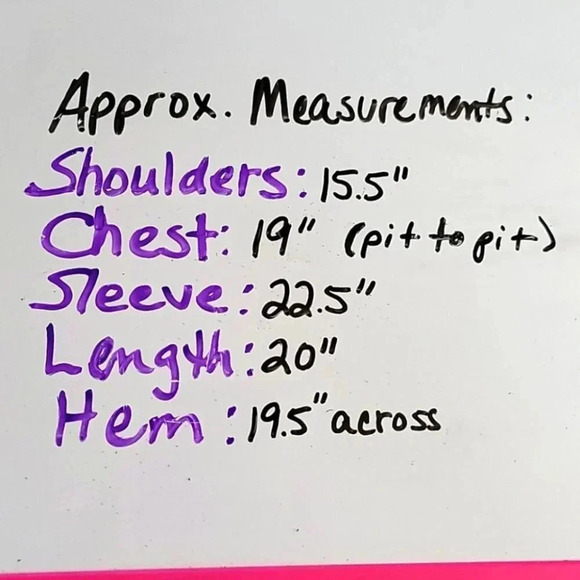 Approx. Measurements:
Shoulders: 15.5"
Chest: 19" (pit to pit)
Sleeve: 22.5"
Length: 20"
Hem: 19.5" across